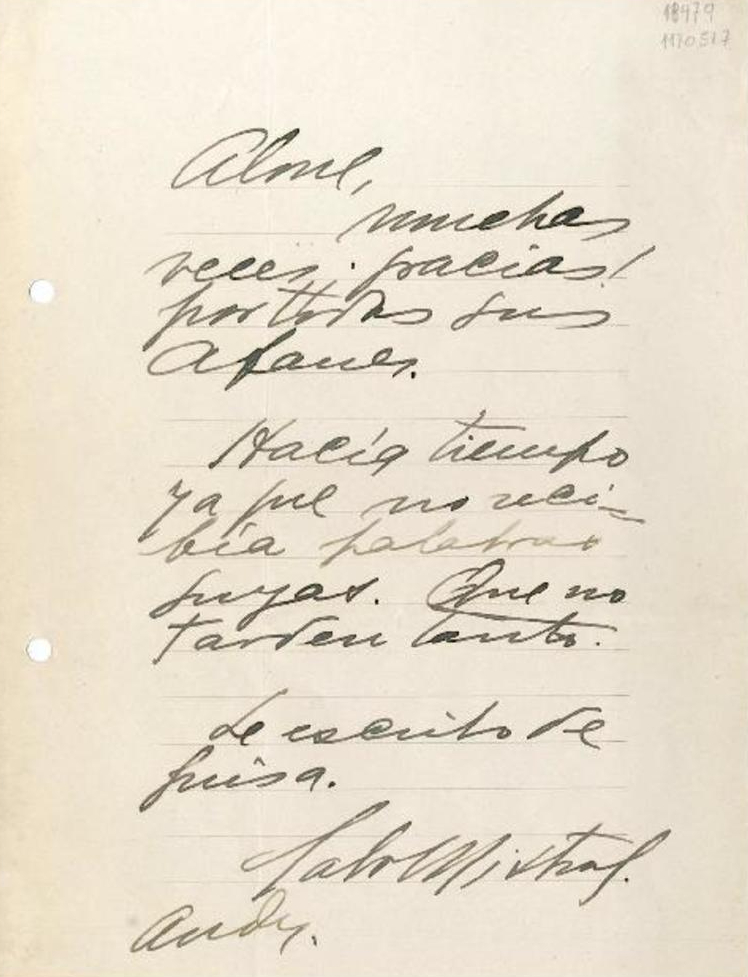 18479
1170517
Alone,
muchas
veces ¡gracias!
por todos sus
afanes.
Hacía tiempo
ya que no reci-
bía palabras
suyas. Que no
tarden tanto.
Le escribo de
prisa.
Gab Mistral.